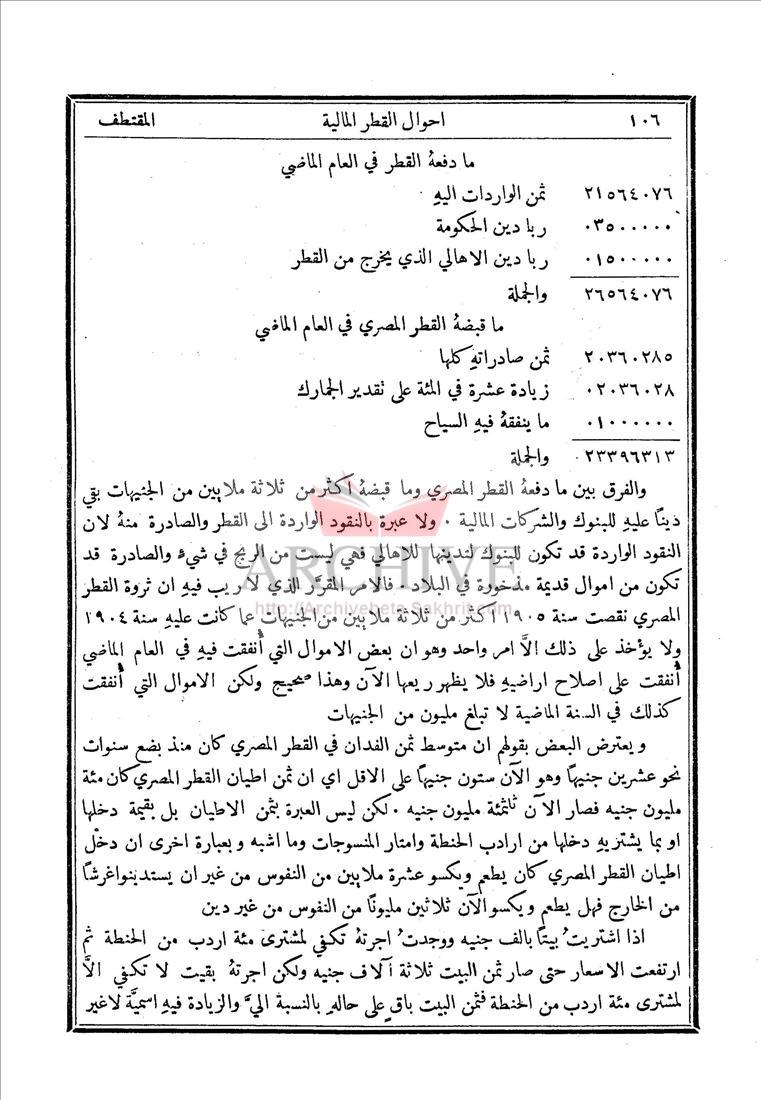 ١٠٦ احوال القطر المالية المقتطف
ما دفعهُ القطر في العام الماضي
٢١٥٦٤٠٧٦ ثمن الواردات اليهِ
٠٣٥٠٠٠٠٠ ربا دين الحكومة
٠١٥٠٠٠٠٠ ربا دين الاهالي الذي يخرج من القطر
٢٦٥٦٤٠٧٦ والجملة
ما قبضهُ القطر المصري في العام الماضي
٢٠٣٦٠٢٨٥ ثمن صادراتهِ كلها
٠٢٠٣٦٠٢٨ زيادة عشرة في المئة على تقدير الجمارك
٠١٠٠٠٠٠٠ ما ينفقهُ فيهِ السياح
٢٣٣٩٦٣١٣ والجملة
والفرق بين ما دفعهُ القطر المصري وما قبضهُ اكثر من ثلاثة ملايين من الجنيهات بقي
دينًا عليهِ للبنوك والشركات المالية ٠ ولا عبرة بالنقود الواردة الى القطر والصادرة منهُ لان
النقود الواردة قد تكون للبنوك لتدينها للاهالي فهي ليست من الربح في شيء والصادرة قد
تكون من اموال قديمة مذخورة في البلاد ٠ فالامر المقرَّر الذي لا ريب فيهِ ان ثروة القطر
المصري نقصت سنة ١٩٠٥ اكثر من ثلاثة ملايين من الجنيهات عما كانت عليهِ سنة ١٩٠٤
ولا يؤخذ على ذلك الاَّ امر واحد وهو ان بعض الاموال التي أُنفقت فيهِ في العام الماضي
أُنفقت على اصلاح اراضيهِ فلا يظهر ريعها الآن وهذا صحيح ولكن الاموال التي أُنفقت
كذلك في السنة الماضية لا تبلغ مليون من الجنيهات
ويعترض البعض بقولهم ان متوسط ثمن الفدان في القطر المصري كان منذ بضع سنوات
نحو عشرين جنيهًا وهو الآن ستون جنيهًا على الاقل اي ان ثمن اطيان القطر المصري كان مئة
مليون جنيه فصار الآن ثلثمئة مليون جنيه ٠ لكن ليس العبرة بثمن الاطيان بل بقيمة دخلها
او بما يشتريهِ دخلها من ارادب الحنطة وامتار المنسوجات وما اشبه وبعبارة اخرى ان دخْل
اطيان القطر المصري كان يطعم ويكسو عشرة ملايين من النفوس من غير ان يستدينوا غرشًا
من الخارج فهل يطعم ويكسو الآن ثلاثين مليونًا من النفوس من غير دين
اذا اشتريتُ بيتًا بالف جنيه ووجدتُ اجرتهُ تكفي لمشترى مئة اردب من الحنطة ثم
ارتفعت الاسعار حتى صار ثمن البيت ثلاثة آلاف جنيه ولكن اجرتهُ بقيت لا تكفي الاَّ
لمشترى مئة اردب من الحنطة فثمن البيت باقٍ على حالهِ بالنسبة اليَّ والزيادة فيهِ اسميَّة لا غير
ARCHIVE
http://Archivebeta.Sakhrit.com